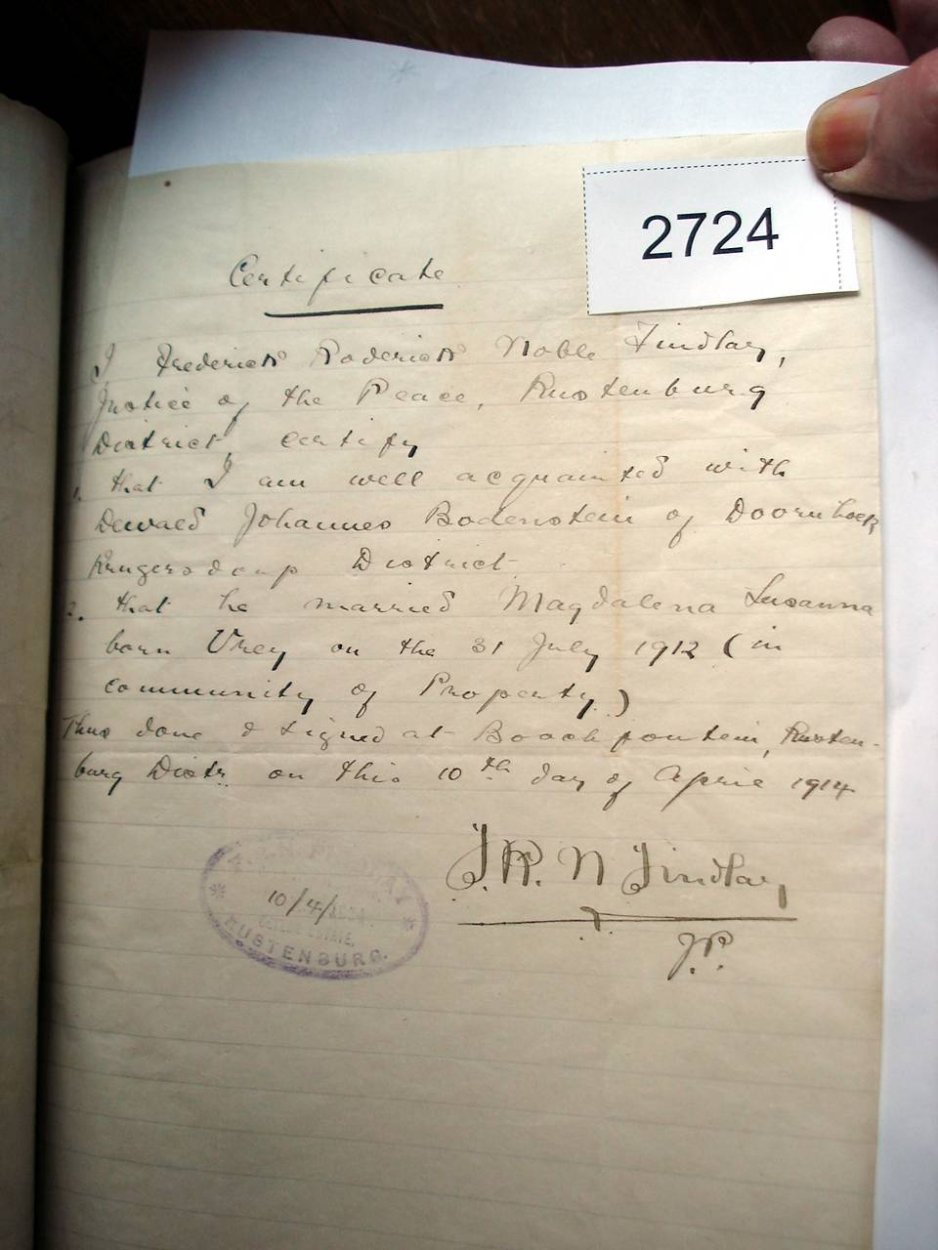 2724
Certificate
I Frederick Roderick Noble Findlay,
Justice of the Peace, Rustenburg
District certify
1. that I am well acquainted with
Dewald Johannes Bodenstein of Doornhoek
Krugersdorp District
2. that he married Magdalena Susanna
born Vrey on the 31 July 1912 (in
community of Property)
Thus done & signed at Boschfontein, Rusten-
burg Distr. on this 10th day of April 1914
F.R.N Findlay
J.P.
10/4/
RUSTENBURG.